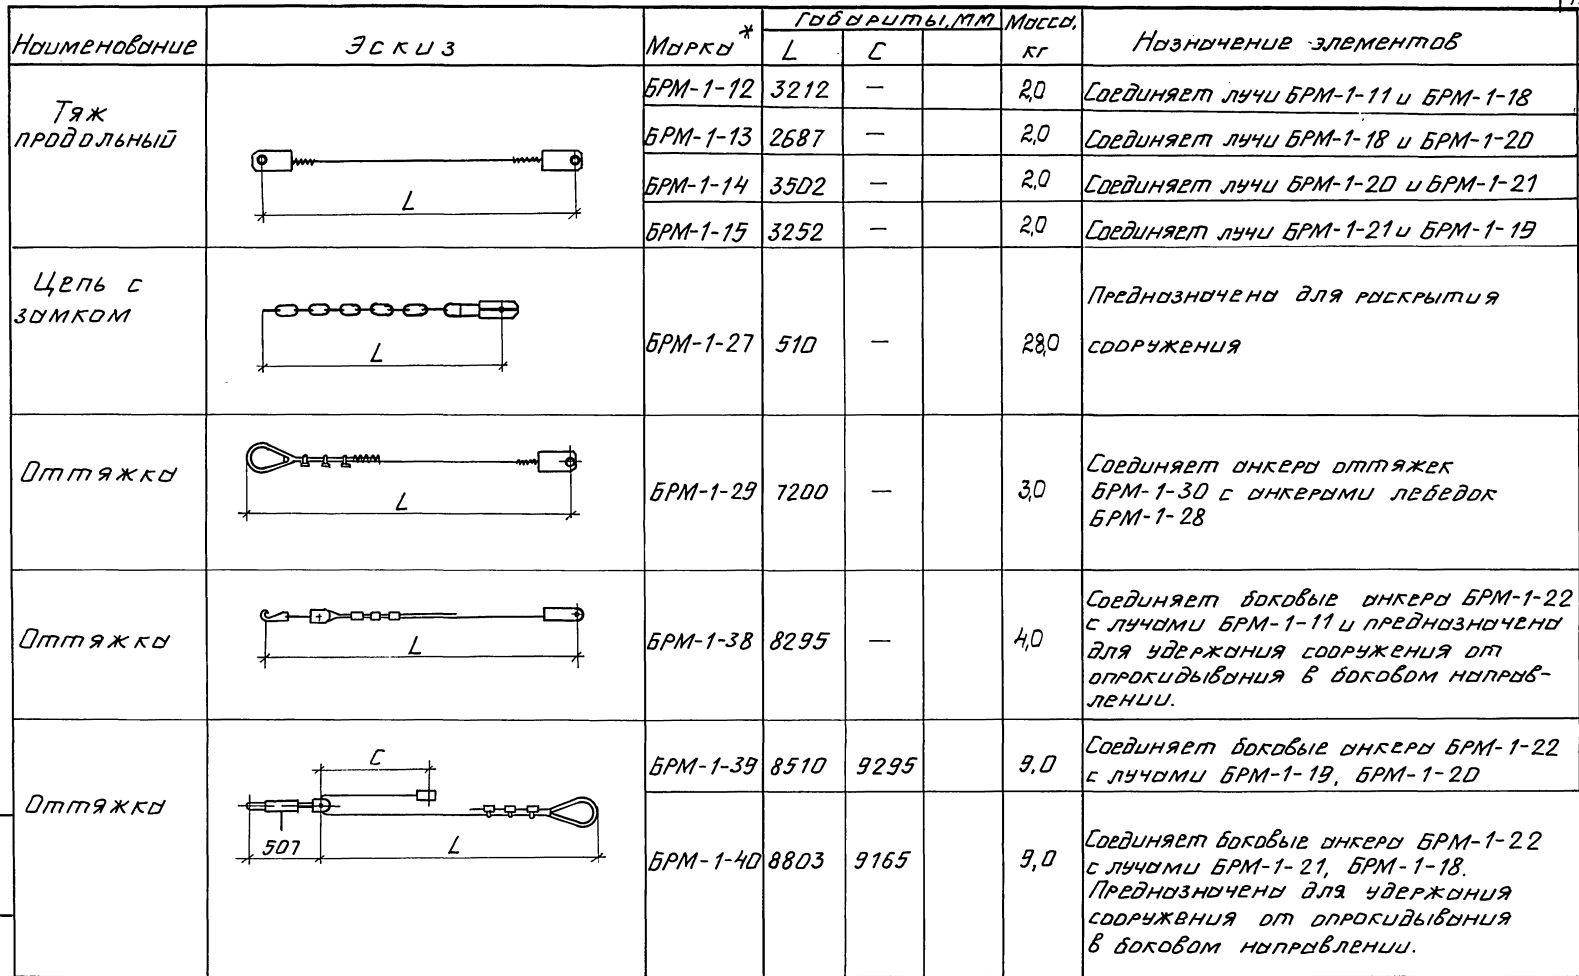 Наименование Эскиз Марка* Габариты, мм Масса, кг Назначение элементов
L C
Тяж
продольный
L
БРМ-1-12 3212 — 2,0 Соединяет лучи БРМ-1-11 и БРМ-1-18
БРМ-1-13 2687 — 2,0 Соединяет лучи БРМ-1-18 и БРМ-1-20
БРМ-1-14 3502 — 2,0 Соединяет лучи БРМ-1-20 и БРМ-1-21
БРМ-1-15 3252 — 2,0 Соединяет лучи БРМ-1-21 и БРМ-1-19
Цепь с
замком
L
БРМ-1-27 510 — 28,0
Предназначена для раскрытия
сооружения
Оттяжка
L
БРМ-1-29 7200 — 3,0
Соединяет анкера оттяжек
БРМ-1-30 с анкерами лебедок
БРМ-1-28
Оттяжка
L
БРМ-1-38 8295 — 4,0
Соединяет боковые анкера БРМ-1-22
с лучами БРМ-1-11 и предназначена
для удержания сооружения от
опрокидывания в боковом направ-
лении.
Оттяжка
C
507 L
БРМ-1-39 8510 9295 9,0
Соединяет боковые анкера БРМ-1-22
с лучами БРМ-1-19, БРМ-1-20
БРМ-1-40 8803 9165 9,0
Соединяет боковые анкера БРМ-1-22
с лучами БРМ-1-21, БРМ-1-18.
Предназначена для удержания
сооружения от опрокидывания
в боковом направлении.